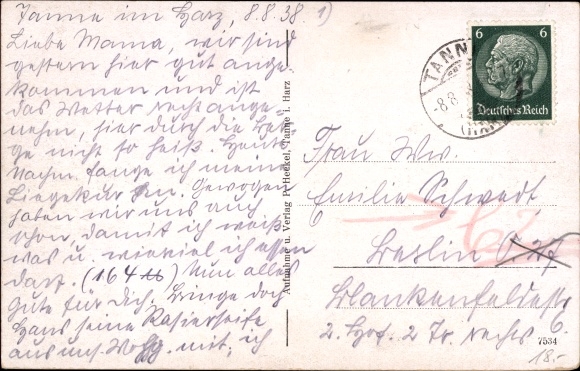 Tanne im Harz, 8.8.38. 1)
Liebe Mama, wir sind
gestern hier gut ange
kommen und ist
das Wetter recht ange-
nehm, hier durch die Ber-
ge nicht so heiß. Heute
Nachm. fange ich meine
Liegekur an. Gewogen
haben wir uns auch
schon, damit ich weiß
was u. wieviel ich essen
darf. (164 ℔) Nun alles
Gute für Dich. Bringe doch
Hans seine Rasierseife
aus uns. Wohg. mit, ich
Aufnahme u. Verlag P. Heckel, Tanne i. Harz
TANNE
-8.8.
(HARZ)
6 6
Deutsches Reich
Frau Ww.
Emilie Schwedt
Berlin O 27
Blankenfeldestr
6.
2. Hof. 2 Tr. rechts
7534
18.-